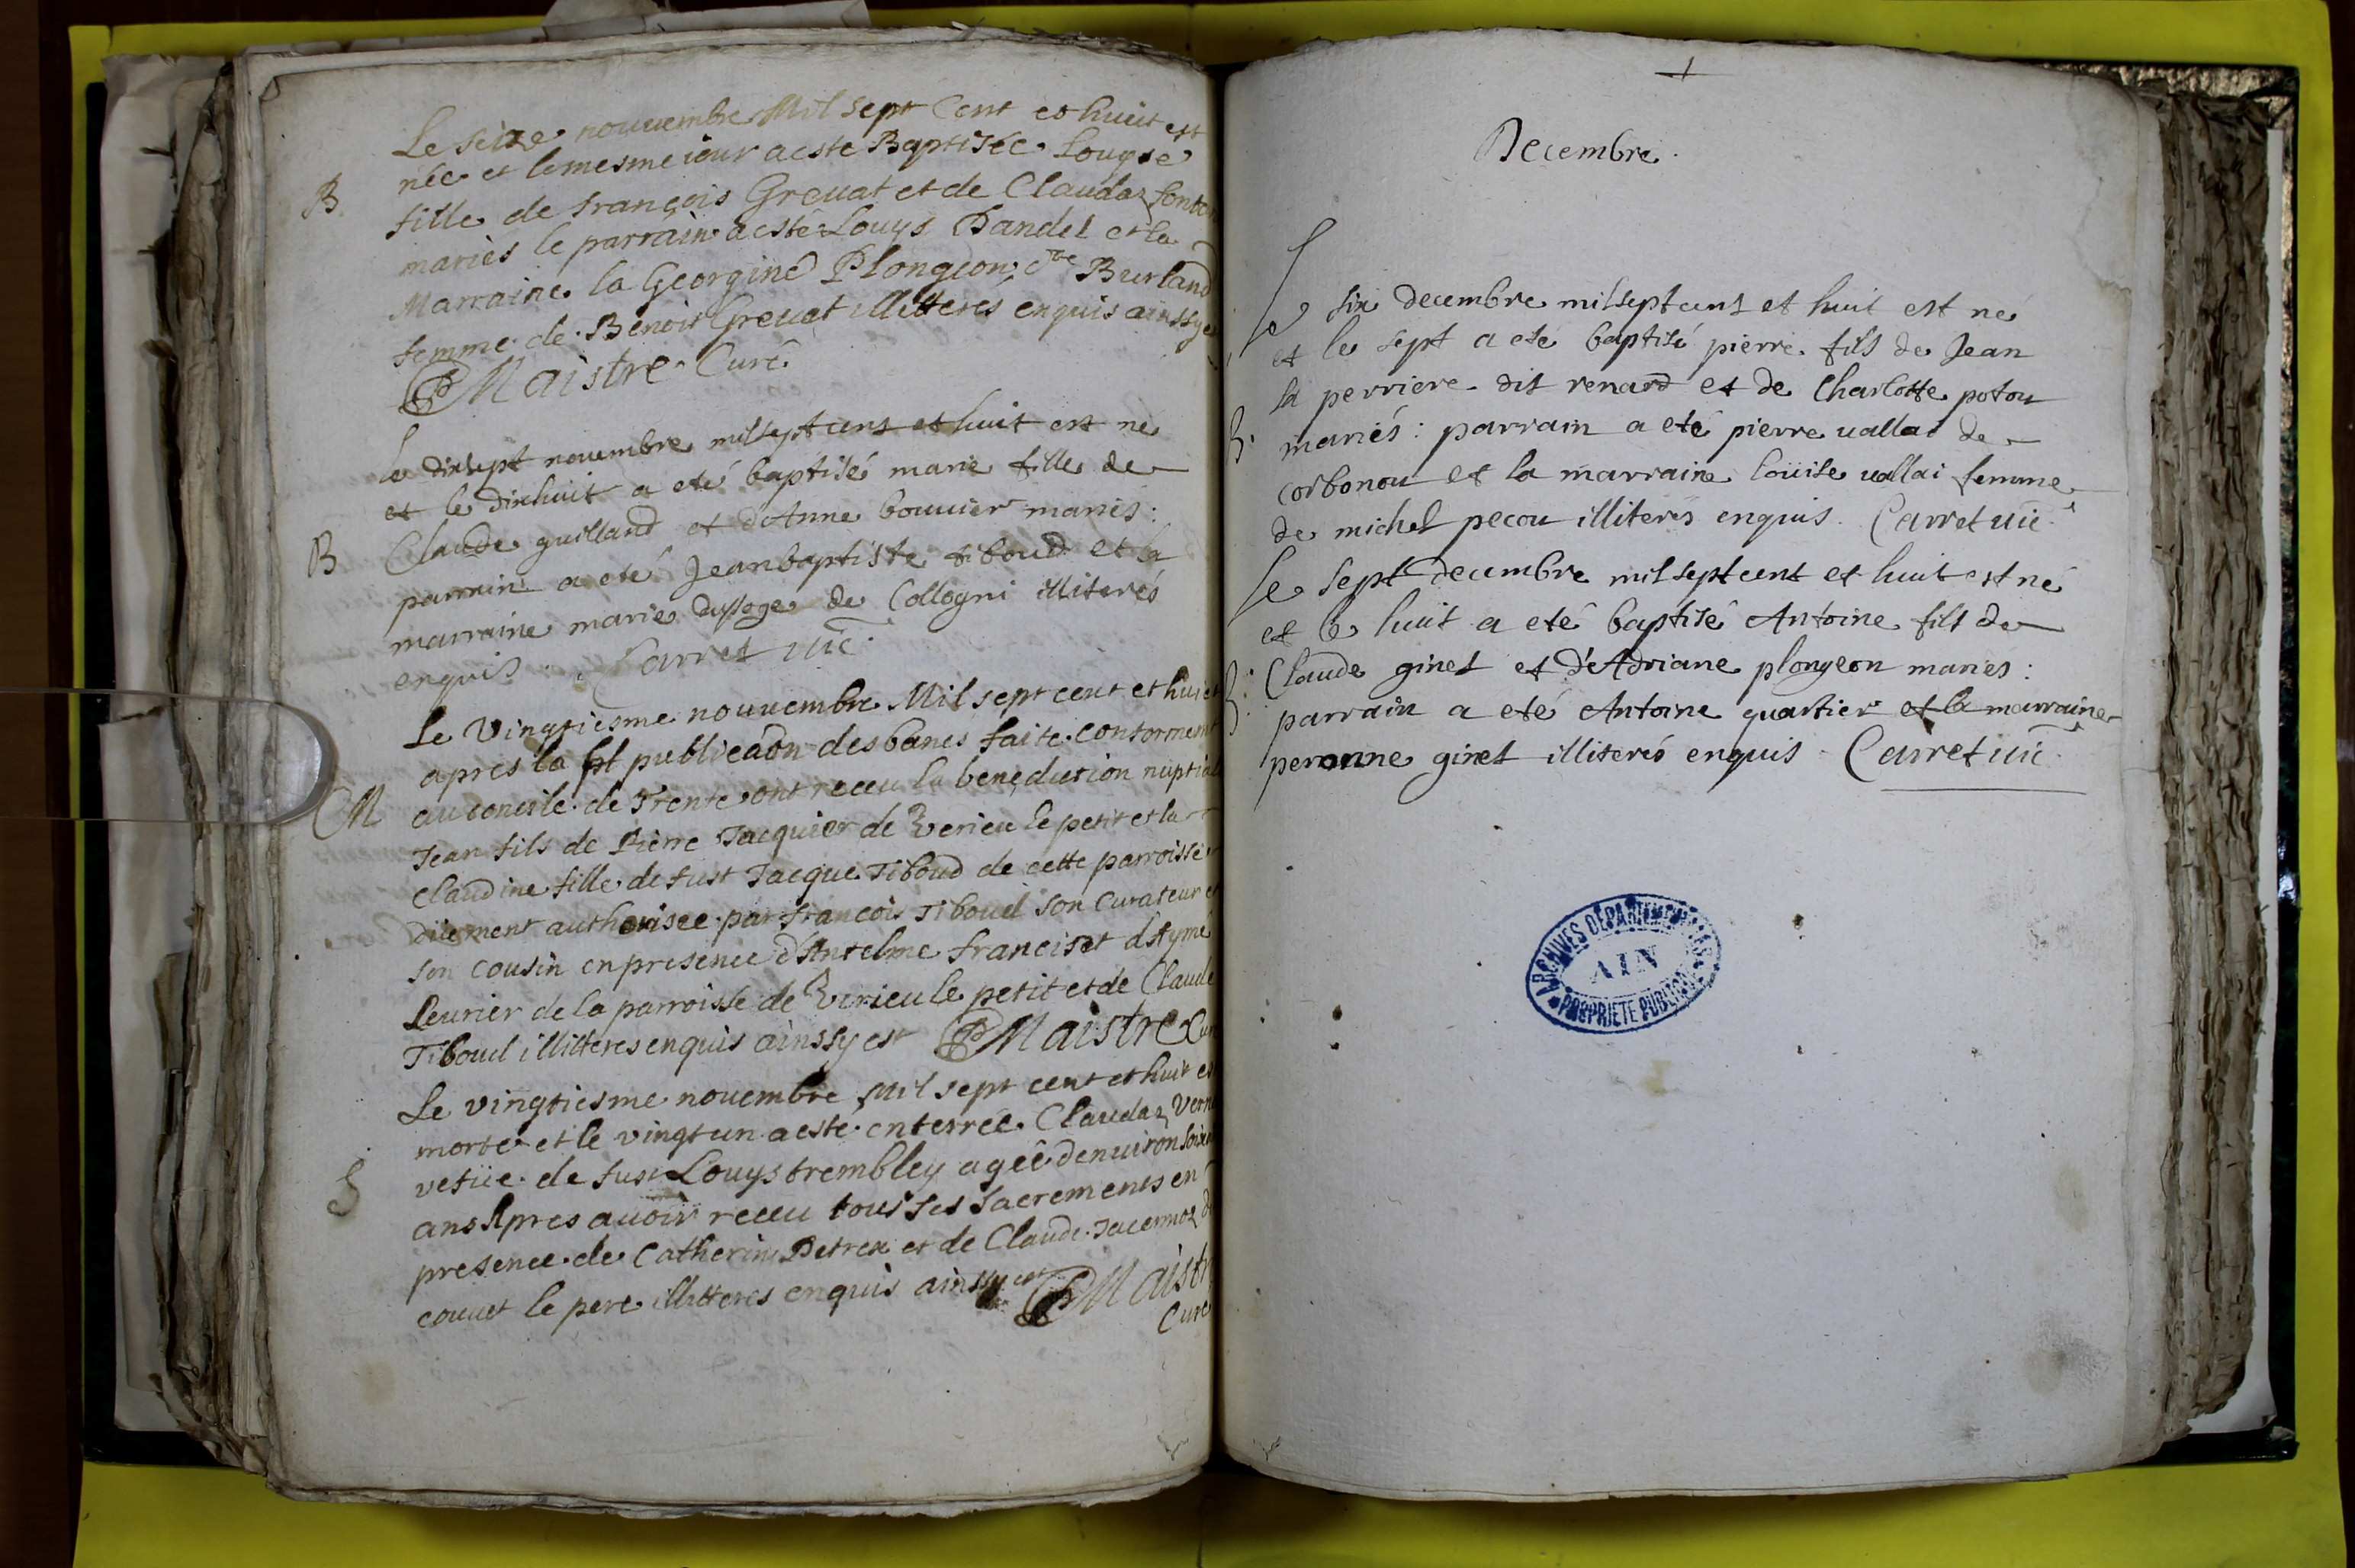 Le seize nouuembre Mil sept Cent et huict est
née et le mesme iour a este Baptisée Louyse
B. fille de françois Greuat et de Claudaz
mariès le parrain a esté Louys Bandet et la
Marraine la Georgine Plongeon, Burland
femme de Benoit Greuat illitteres enquis ainssy
Maistre Curé
Le dixsept nouembre mil sept cens et huit est ne
et le dixhuit a eté baptisé marie fille de
B Claude guilland et d'Anne bouuier mariés :
parrain a eté Jeanbaptiste tiboud et la
marraine marie de Collogni illiterés
enquis . Carret uic
Le Vingtiesme nouuembre Mil sept cent et huict
apres la publicãon des bancs faite conformement
M au concile de Trente ont receu la benediction nuptiale
Jean fils de Pierre Jacquier de Verieu le petit et la
Claudine fille de fust Jacque Tiboud de cette parroisse
düement authorisee par francois Tiboud son Curateur et
son cousin en presence d'Antelme franciset d'Aymé
Peurier de la parroisse de Virieu le petit et de Claude
Tiboud illitteres enquis ainssy est Maistre Curé
Le vingtiesme nouembre Mil sept cent et huit est
morte et le vingt un a este enterrée Claudaz
S vefüe de fust Louys trembley agée denuiron
ans Apres auoir receu tous ses Sacrements en
presence de Catherin Betrex et de Claude Jacemoz
couuet le pere illitteres enquis ainssy est Maistre
Curé
Decembre.
Le six decembre mil sept cens et huit est ne
et le sept a eté baptisé pierre fils de Jean
la perriere dit renard et de Charlotte potou
B. mariés : parrain a eté pierre uallai de
corbonou et la marraine louise uallai femme
de michel pecou illiterés enquis. Carret uic.
Le sept decembre mil sept cent et huit est né
et le huit a eté baptisé Antoine fils de
B. Claude ginet et d'Adriane plongeon mariés :
parrain a eté Antoine quartier et la marraine
peronne ginet illiterés enquis. Carret uic.
ARCHIVES DÉPARTEMENTALES
AIN
PROPRIÉTÉ PUBLIQUE